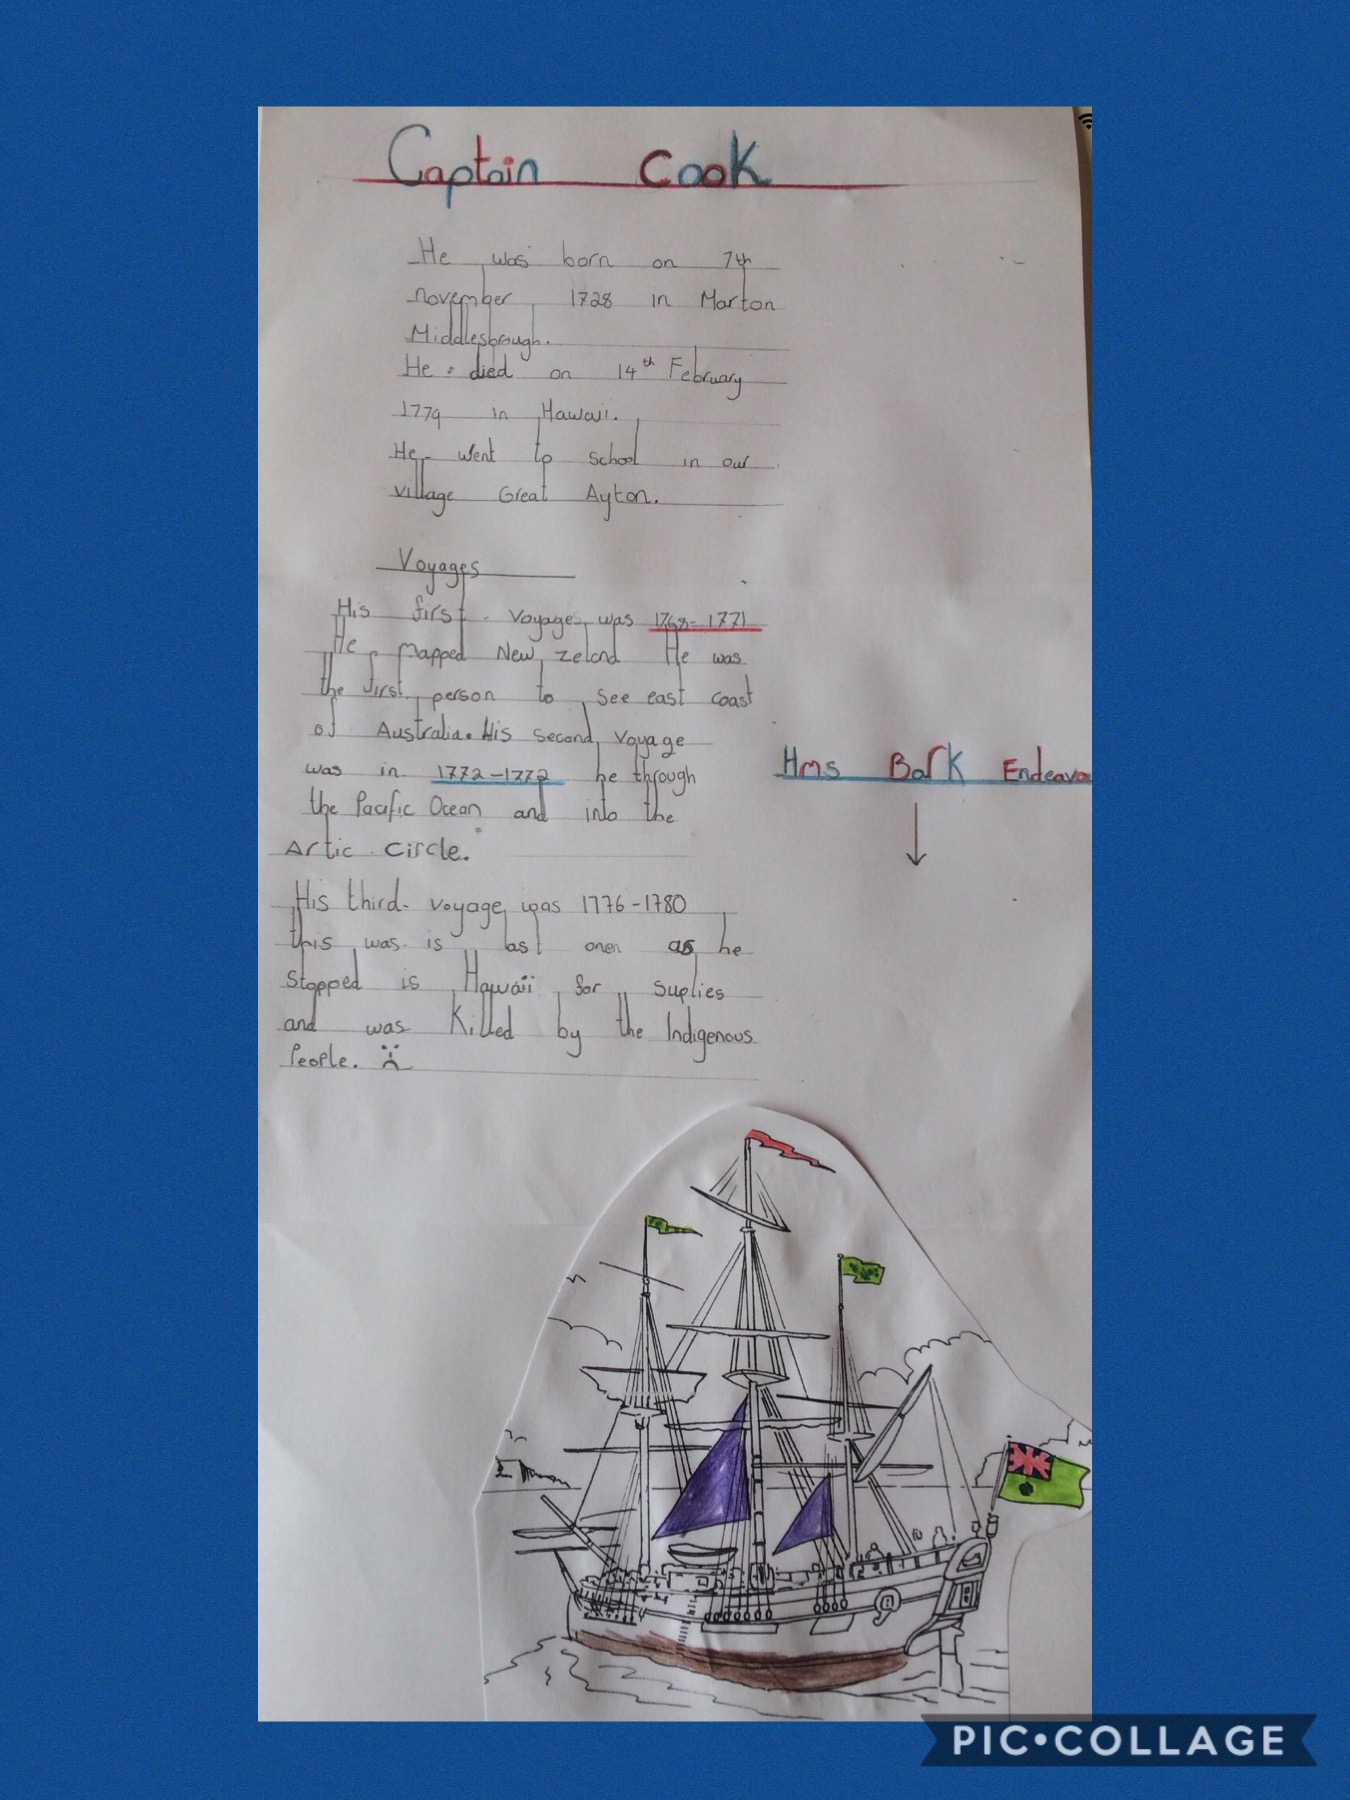 Captain Cook
He was born on 7th
november 1728 in Marton
Middlesbrough.
He died on 14th February
1779 in Hawaii.
He went to school in our
village Great Ayton.
Voyages
His first voyage was 1768-1771
He mapped New zeland He was
the first person to see east coast
of Australia. His second voyage
was in 1772-1772 he through
the Pacific Ocean and into the
Artic Circle.
Hms Bark Endeavo
His third voyage was 1776-1780
this was is last onen as he
stopped is Hawaii for suplies
and was killed by the Indigenous
People.
PIC•COLLAGE